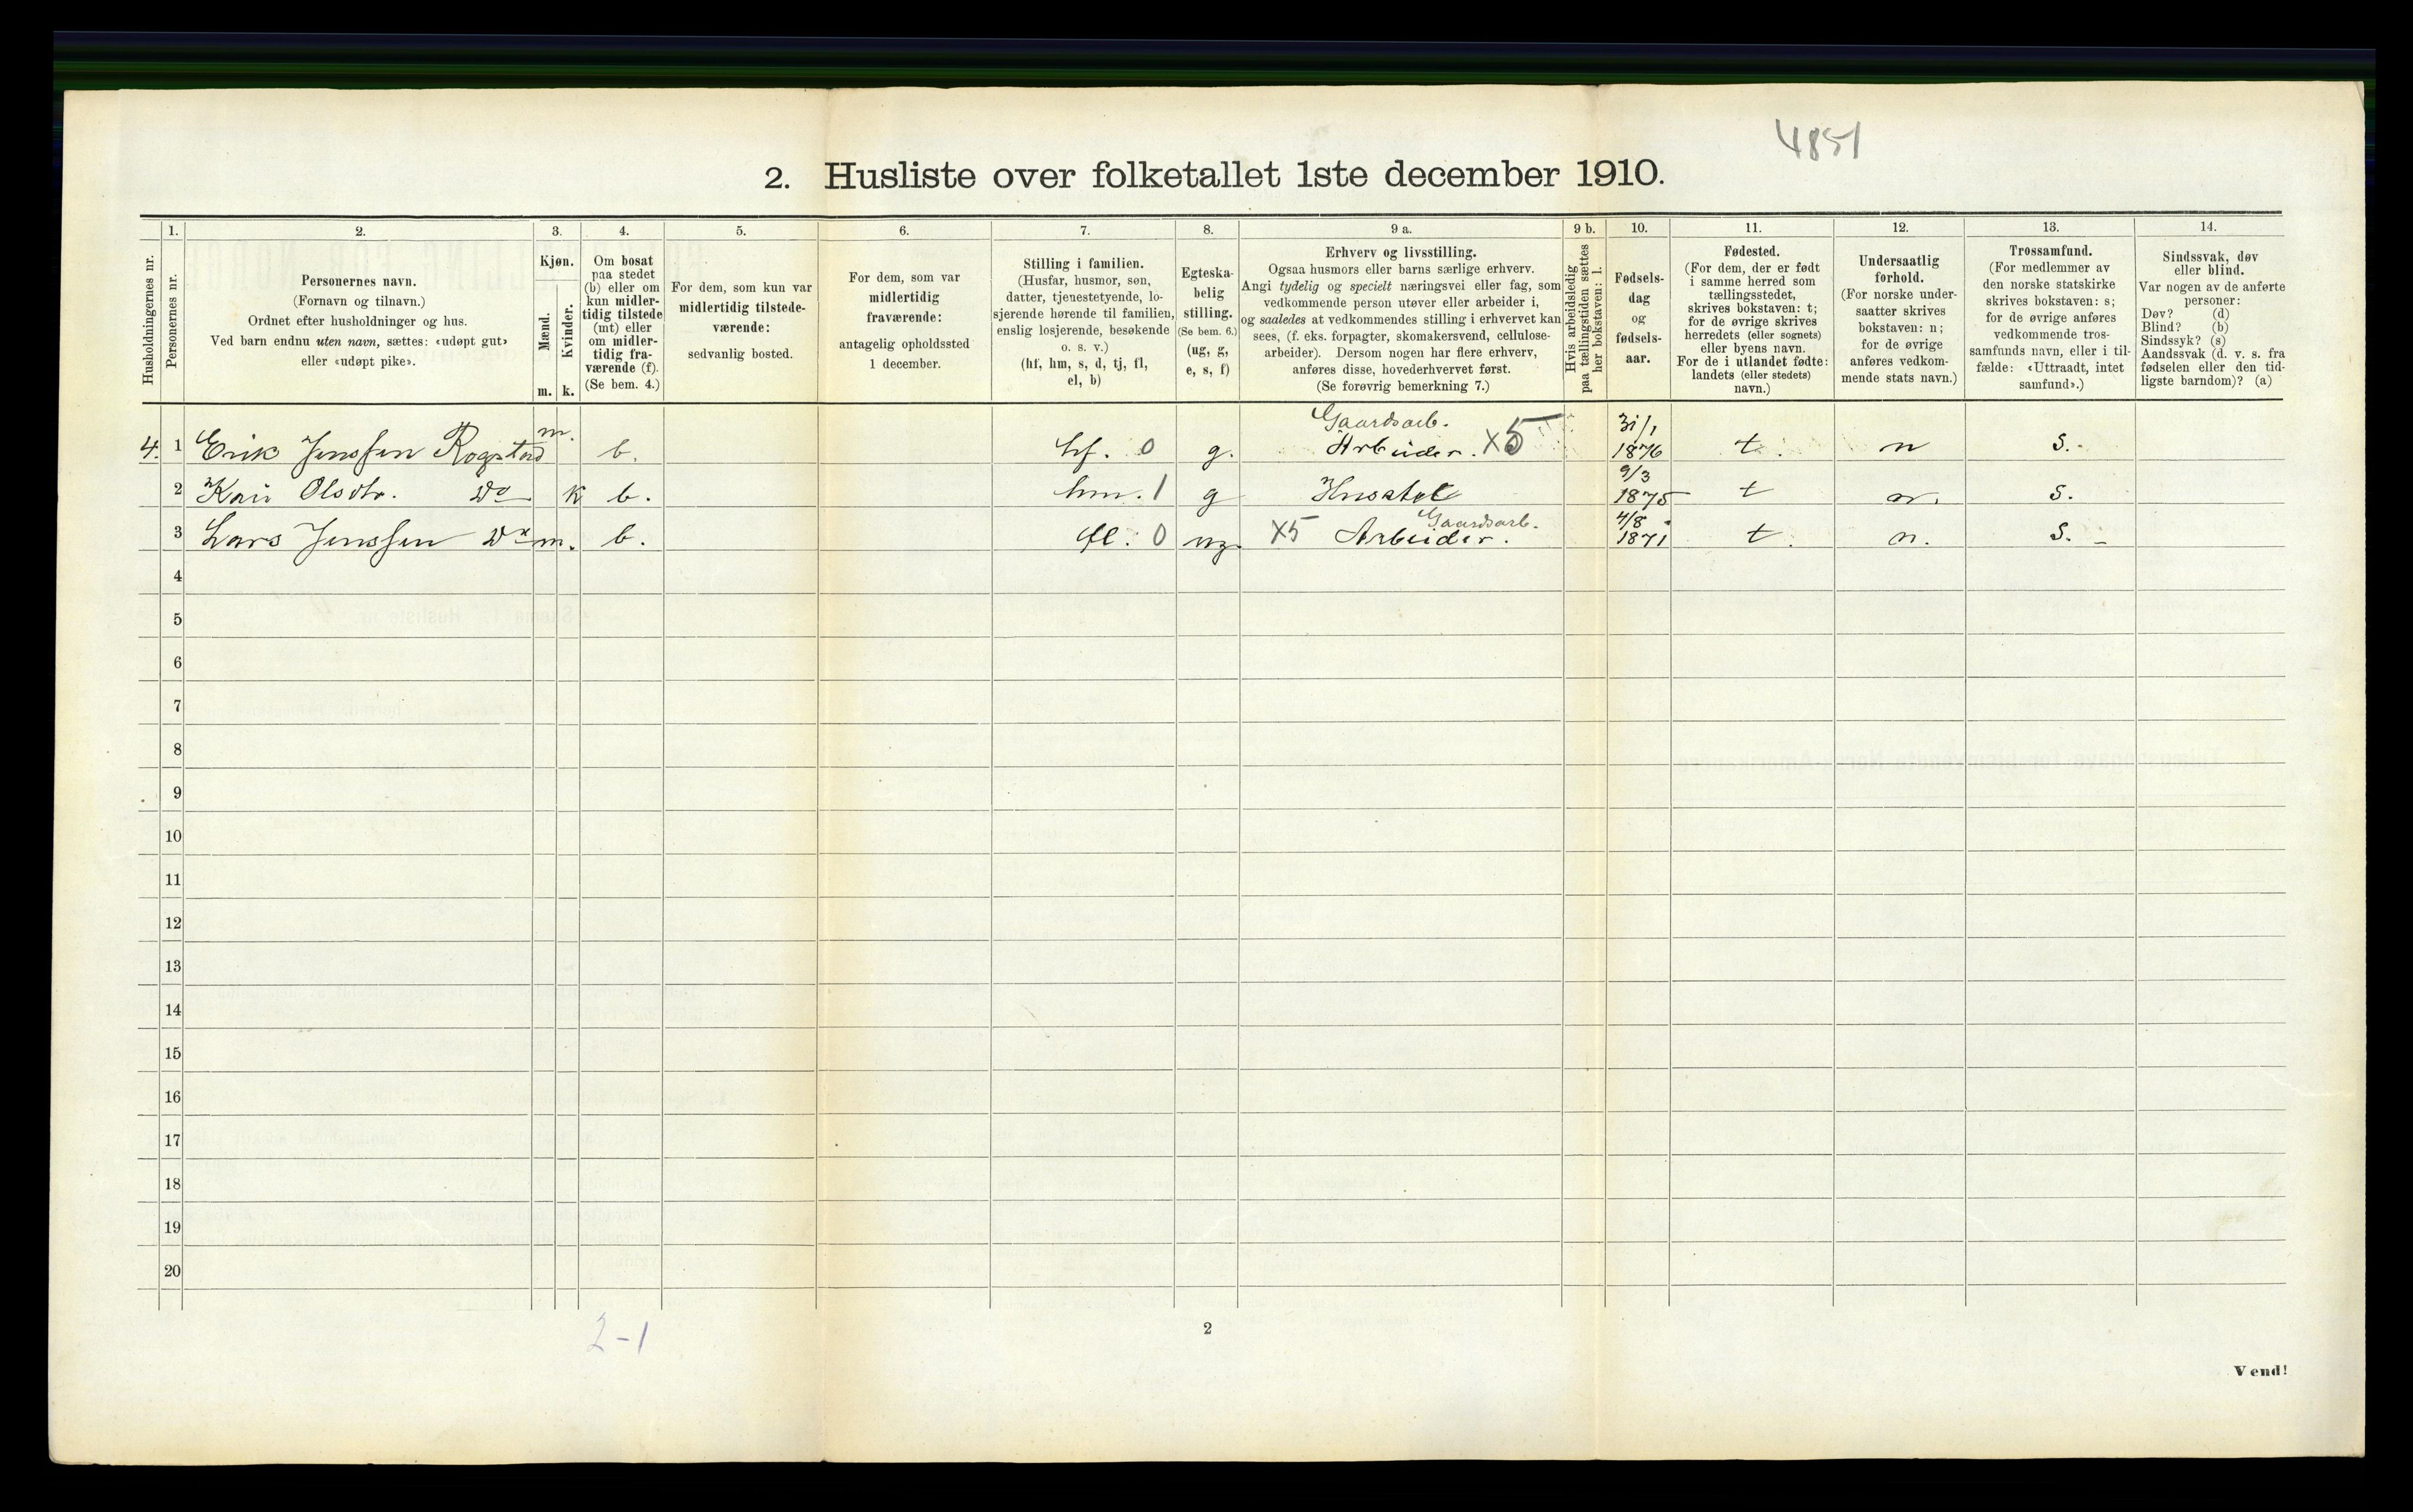 4851
2. Husliste over folketallet 1ste december 1910.
Husholdningernes nr.
1.
Personernes nr.
2.
Personernes navn.
(Fornavn og tilnavn.)
Ordnet efter husholdninger og hus.
Ved barn endnu uten navn, sættes: «udøpt gut»
eller «udøpt pike».
3.
Kjøn.
Mænd.
m.
Kvinder.
k.
4.
Om bosat
paa stedet
(b) eller om
kun midler-
tidig tilstede
(mt) eller
om midler-
tidig fra-
værende (f).
(Se bem. 4.)
5.
For dem, som kun var
midlertidig tilstede-
værende:
sedvanlig bosted.
6.
For dem, som var
midlertidig
fraværende:
antagelig opholdssted
1 december.
7.
Stilling i familien.
(Husfar, husmor, søn,
datter, tjenestetyende, lo-
sjerende hørende til familien,
enslig losjerende, besøkende
o. s. v.)
(hf, hm, s, d, tj, fl,
el, b)
8.
Egteska-
belig
stilling.
(Se bem. 6.)
(ug, g,
e, s, f)
9 a.
Erhverv og livsstilling.
Ogsaa husmors eller barns særlige erhverv.
Angi tydelig og specielt næringsvei eller fag, som
vedkommende person utøver eller arbeider i,
og saaledes at vedkommendes stilling i erhvervet kan
sees, (f. eks. forpagter, skomakersvend, cellulose-
arbeider). Dersom nogen har flere erhverv,
anføres disse, hovederhvervet først.
(Se forøvrig bemerkning 7.)
9 b.
Hvis arbeidsledig
paa tællingstiden sættes
her bokstaven: l.
10.
Fødsels-
dag
og
fødsels-
aar.
11.
Fødested.
(For dem, der er født
i samme herred som
tællingsstedet,
skrives bokstaven: t;
for de øvrige skrives
herredets (eller sognets)
eller byens navn.
For de i utlandet fødte:
landets (eller stedets)
navn.)
12.
Undersaatlig
forhold.
(For norske under-
saatter skrives
bokstaven: n;
for de øvrige
anføres vedkom-
mende stats navn.)
13.
Trossamfund.
(For medlemmer av
den norske statskirke
skrives bokstaven: s;
for de øvrige anføres
vedkommende tros-
samfunds navn, eller i til-
fælde: «Uttraadt, intet
samfund».)
14.
Sindssvak, døv
eller blind.
Var nogen av de anførte
personer:
Døv? (d)
Blind? (b)
Sindssyk? (s)
Aandssvak (d. v. s. fra
fødselen eller den tid-
ligste barndom)? (a)
Gaardsarb.
4. 1 Erik Jenssen Rogstad m. b. hf. 0 g. Arbeider. X5 31/1 1876 t. n s.-
2 Kari Olsdtr. Do k b. hm. 1 g Husstel 9/3 1875 t n. s.
Gaardsarb.
3 Lars Jenssen Do m. b. fl. 0 ug. X5 Arbeider. 4/8 1871 t. n. s. -
4
5
6
7
8
9
10
11
12
13
14
15
16
17
18
19
20
2-1
2
Vend!